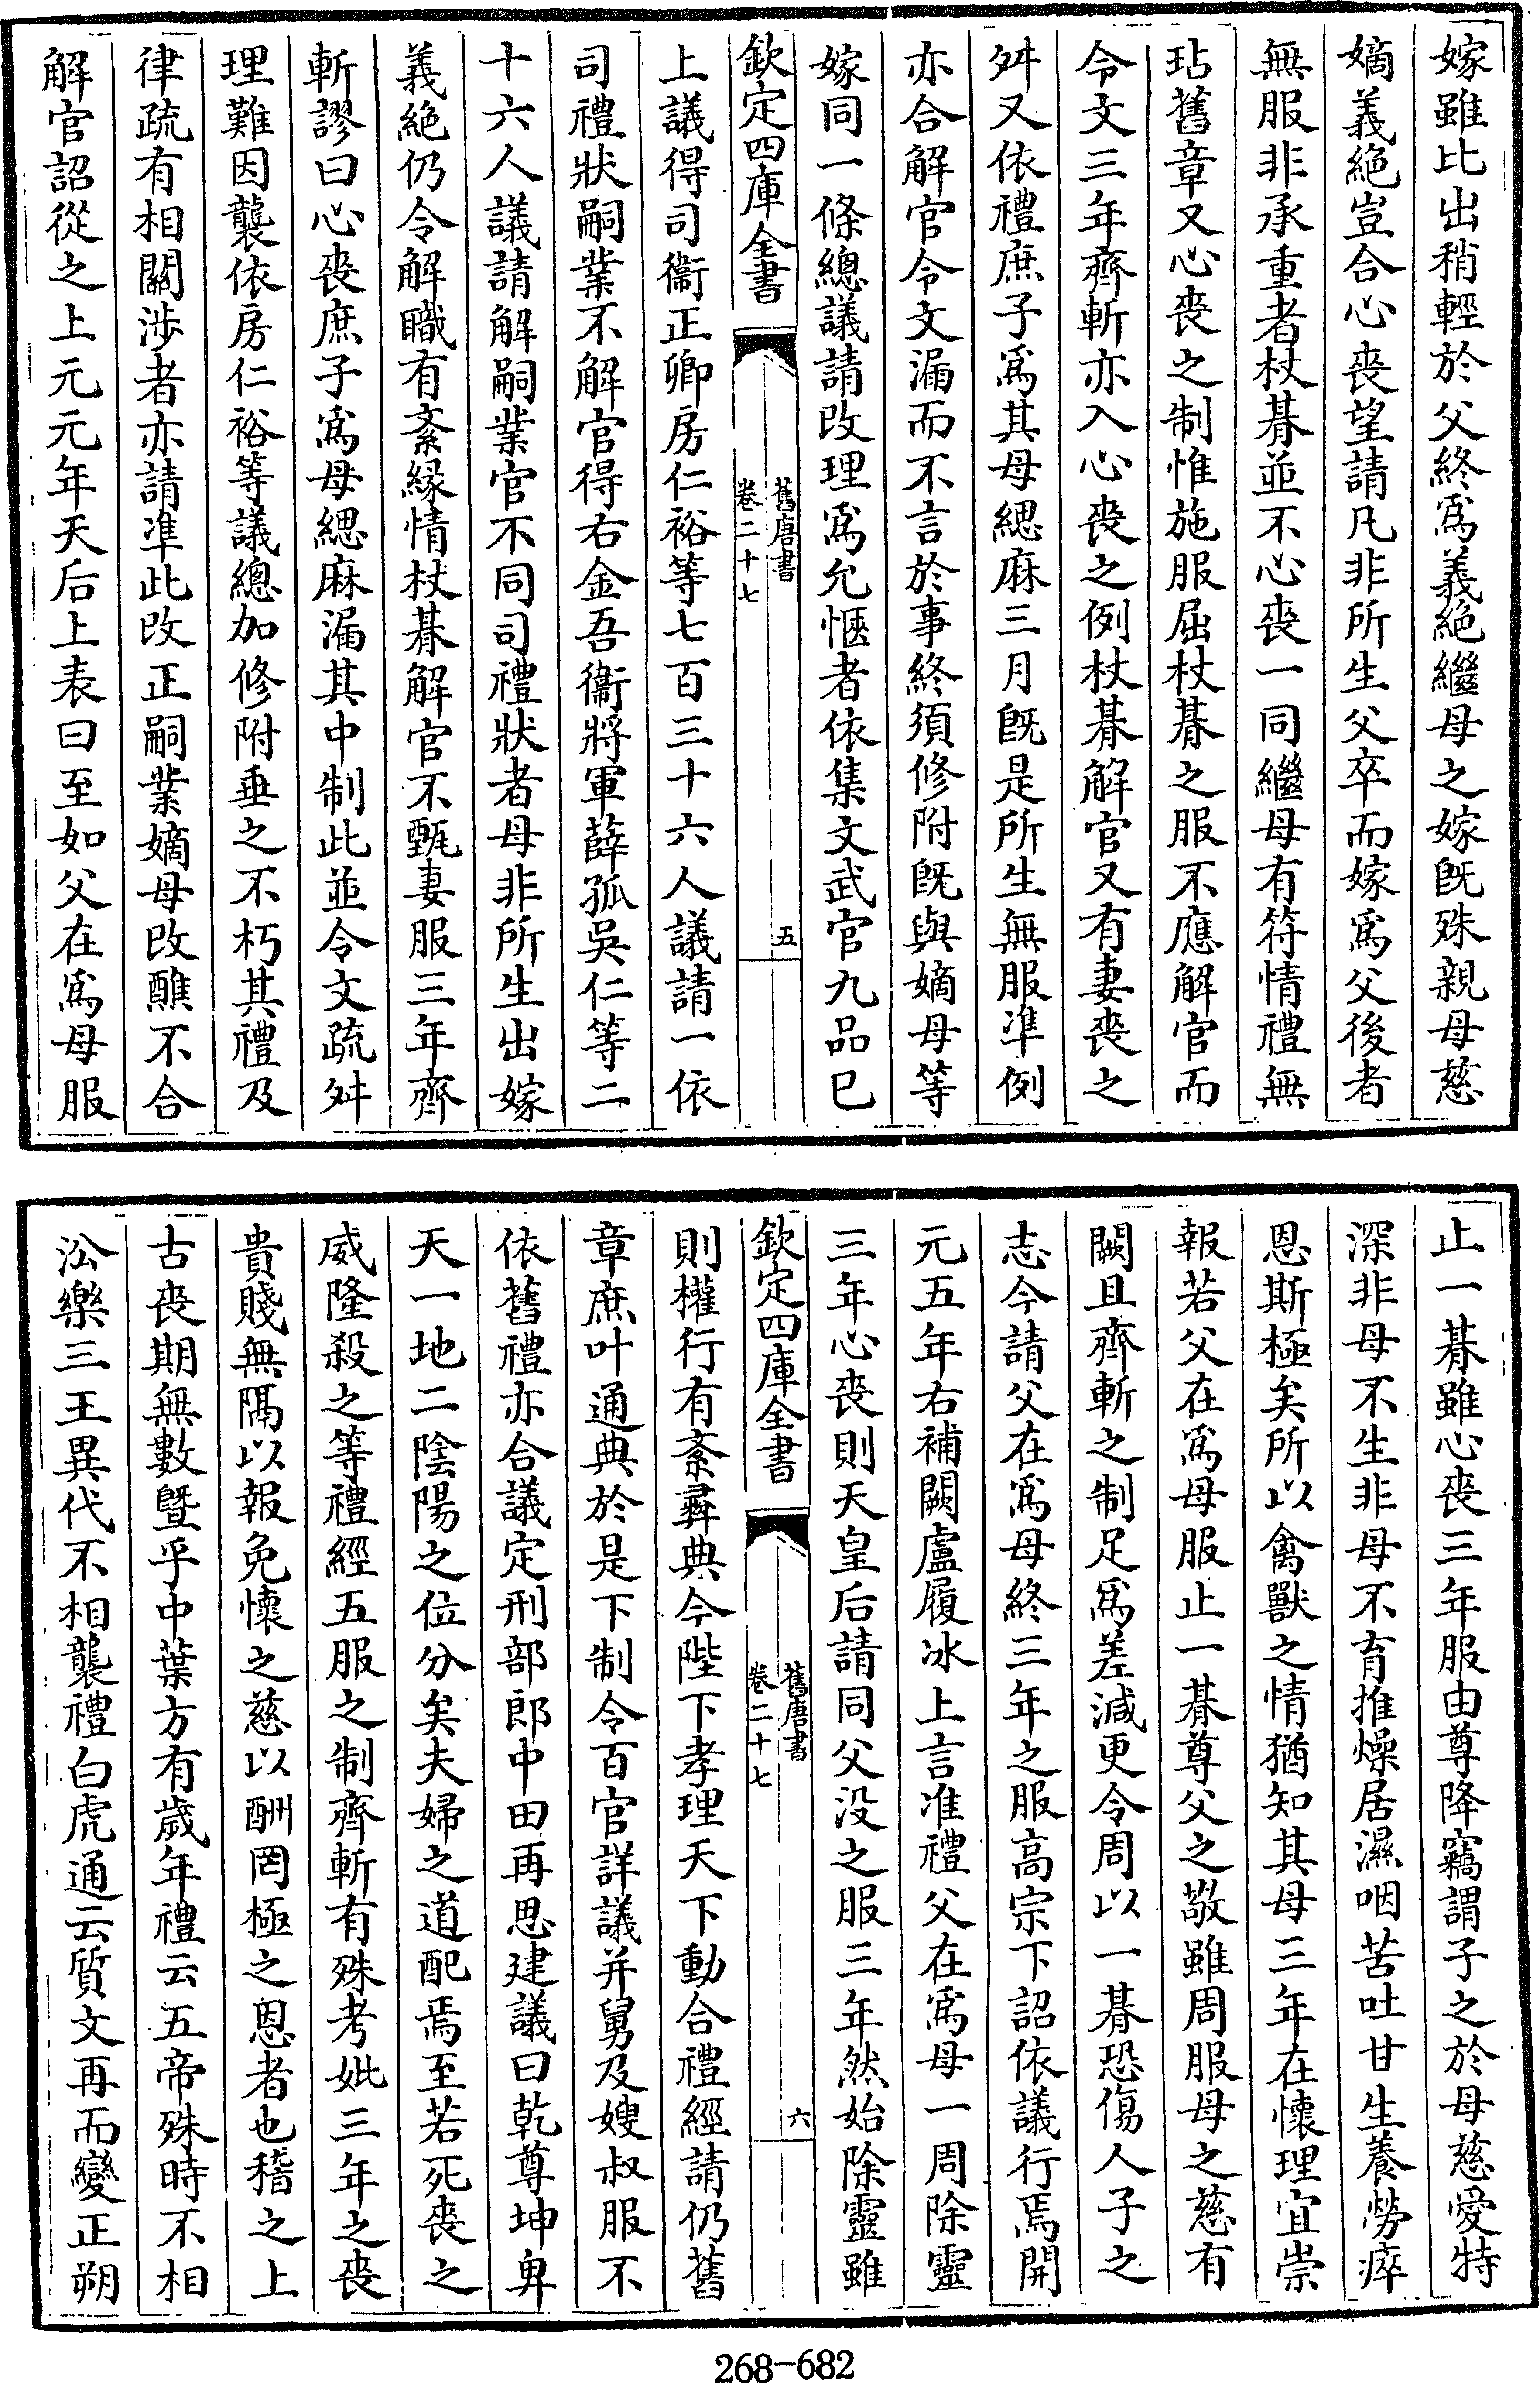 嫁雖比出稍輕於父終爲義絶繼母之嫁旣殊親母慈
嫡義絶豈合心喪望請凡非所生父卒而嫁爲父後者
無服非承重者杖朞並不心喪一同繼母有符情禮無
玷舊章又心喪之制惟施服屈杖朞之服不應解官而
令文三年齊斬亦入心喪之例杖朞解官又有妻喪之
舛又依禮庶子爲其母緦麻三月旣是所生無服準例
亦合解官令文漏而不言於事終須修附旣與嫡母等
嫁同一條總議請改理爲允愜者依集文武官九品已
欽定四庫全書
舊唐書
卷二十七
五
上議得司衞正卿房仁裕等七百三十六人議請一依
司禮狀嗣業不解官得右金吾衞將軍薛孤吳仁等二
十六人議請解嗣業官不同司禮狀者母非所生出嫁
義絶仍令解職有紊緣情杖朞解官不甄妻服三年齊
斬謬曰心喪庶子爲母緦麻漏其中制此並令文疏舛
理難因襲依房仁裕等議總加修附垂之不朽其禮及
律疏有相關涉者亦請準此改正嗣業嫡母改醮不合
解官詔從之上元元年天后上表曰至如父在爲母服
止一朞雖心喪三年服由尊降竊謂子之於母慈愛特
深非母不生非母不育推燥居濕咽苦吐甘生養勞瘁
恩斯極矣所以禽獸之情猶知其母三年在懷理宜崇
報若父在爲母服止一朞尊父之敬雖周服母之慈有
闕且齊斬之制足爲差減更令周以一朞恐傷人子之
志今請父在爲母終三年之服高宗下詔依議行焉開
元五年右補闕盧履冰上言准禮父在爲母一周除靈
三年心喪則天皇后請同父没之服三年然始除靈雖
欽定四庫全書
舊唐書
卷二十七
六
則權行有紊彞典今陛下孝理天下動合禮經請仍舊
章庶叶通典於是下制令百官詳議并舅及嫂叔服不
依舊禮亦合議定刑部郎中田再思建議曰乾尊坤卑
天一地二陰陽之位分矣夫婦之道配焉至若死喪之
威隆殺之等禮經五服之制齊斬有殊考妣三年之喪
貴賤無隔以報免懷之慈以酬罔極之恩者也稽之上
古喪期無數曁乎中葉方有歲年禮云五帝殊時不相
㳂樂三王異代不相襲禮白虎通云質文再而變正朔
268-682